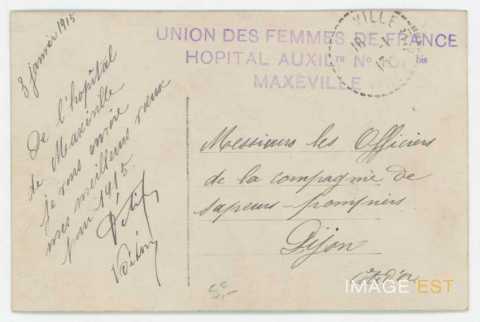 3 janvier 1915
De l'hôpital
de Maxéville
je vous envoie
mes meilleurs vœux
pour 1915.
UNION DES FEMMES DE FRANCE
HOPITAL AUXILre No bis
MAXEVILLE
VILLE
Messieurs les Officiers
de la compagnie de
sapeurs-pompiers
Dijon
Côte d'Or
IMAGE'EST